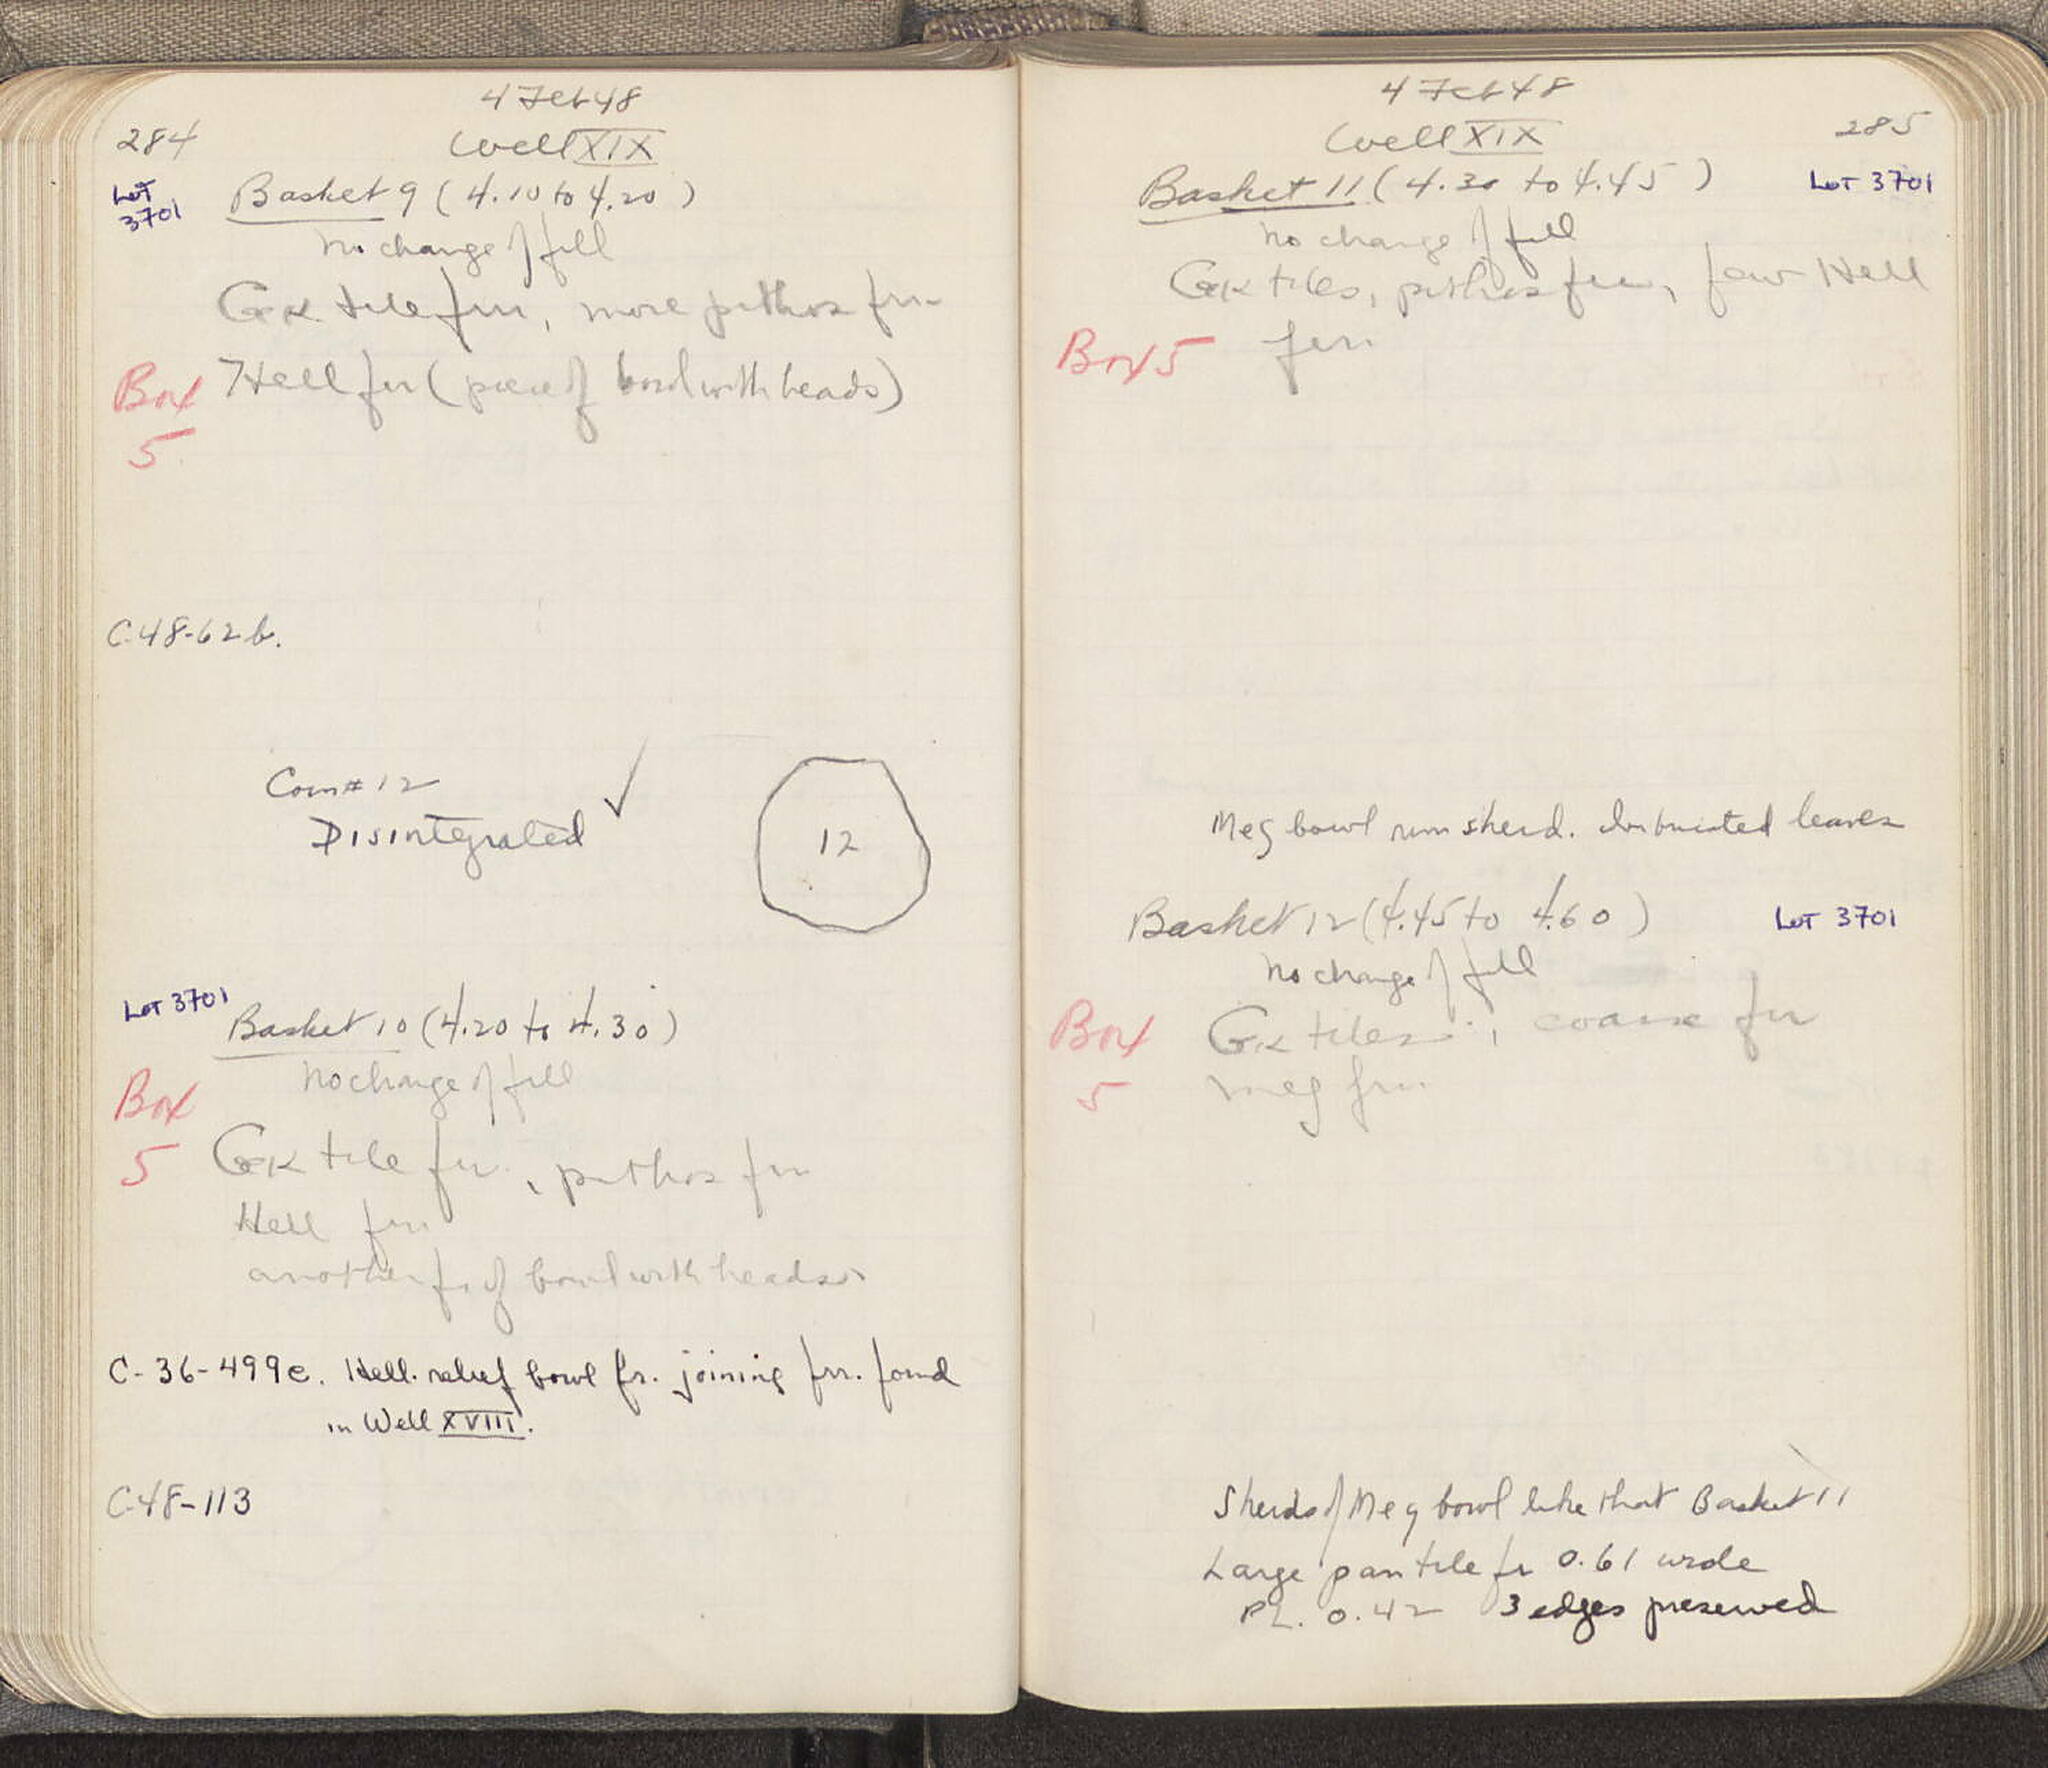 4 Feb 48
284
Well XIX
Lot 3701
Basket 9 (4.10 to 4.20)
No change of fill
Gk tile frr, more pithos frr.
Box 5
Hell frr (piece of bowl with heads)
C-48-62b.
Coin # 12
Disintegrated ✓
12
Lot 3701
Basket 10 (4.20 to 4.30)
No change of fill
Box 5
Gk tile frr., pithos frr
Hell frr.
another fr of bowl with heads.
C-36-499e. Hell. relief bowl fr. joining frr. found
in Well XVIII.
C-48-113
4 Feb 48
285
Well XIX
Basket 11 (4.30 to 4.45)
Lot 3701
No change of fill
Gk tiles, pithos frr, few Hell
Box 5
frr.
Meg bowl rim sherd. Imbricated leaves
Basket 12 (4.45 to 4.60)
Lot 3701
No change of fill
Box 5
Gk tiles, coarse frr
Meg frr.
Sherds of Meg bowl like that Basket 11
Large pan tile fr 0.61 wide
PL. 0.42 3 edges preserved